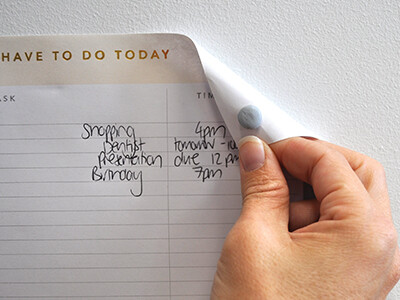 HAVE TO DO TODAY
ASK TIM
Shopping 4pm
Dentist tomorrow -10
Presentation due 12pm
Birthday 7pm